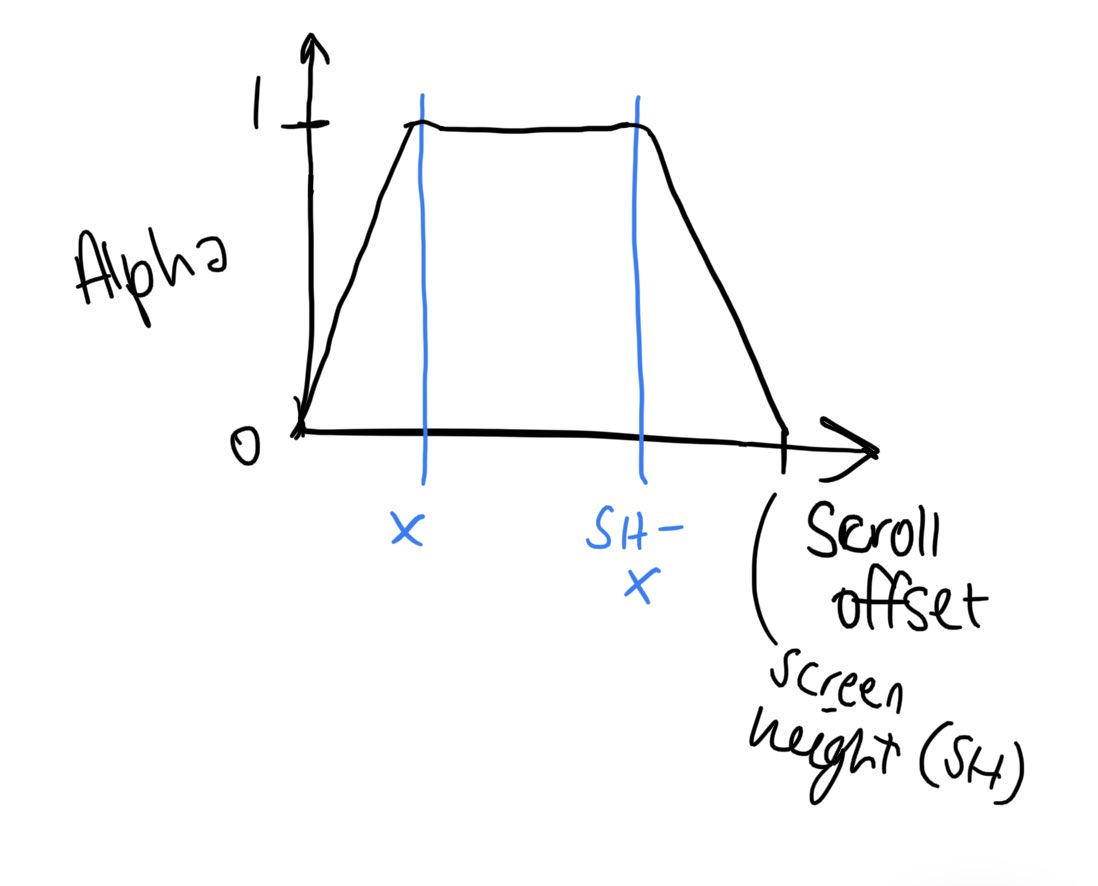 1
Alpha
0
X
SH-
X
Scroll
offset
screen
height (SH)